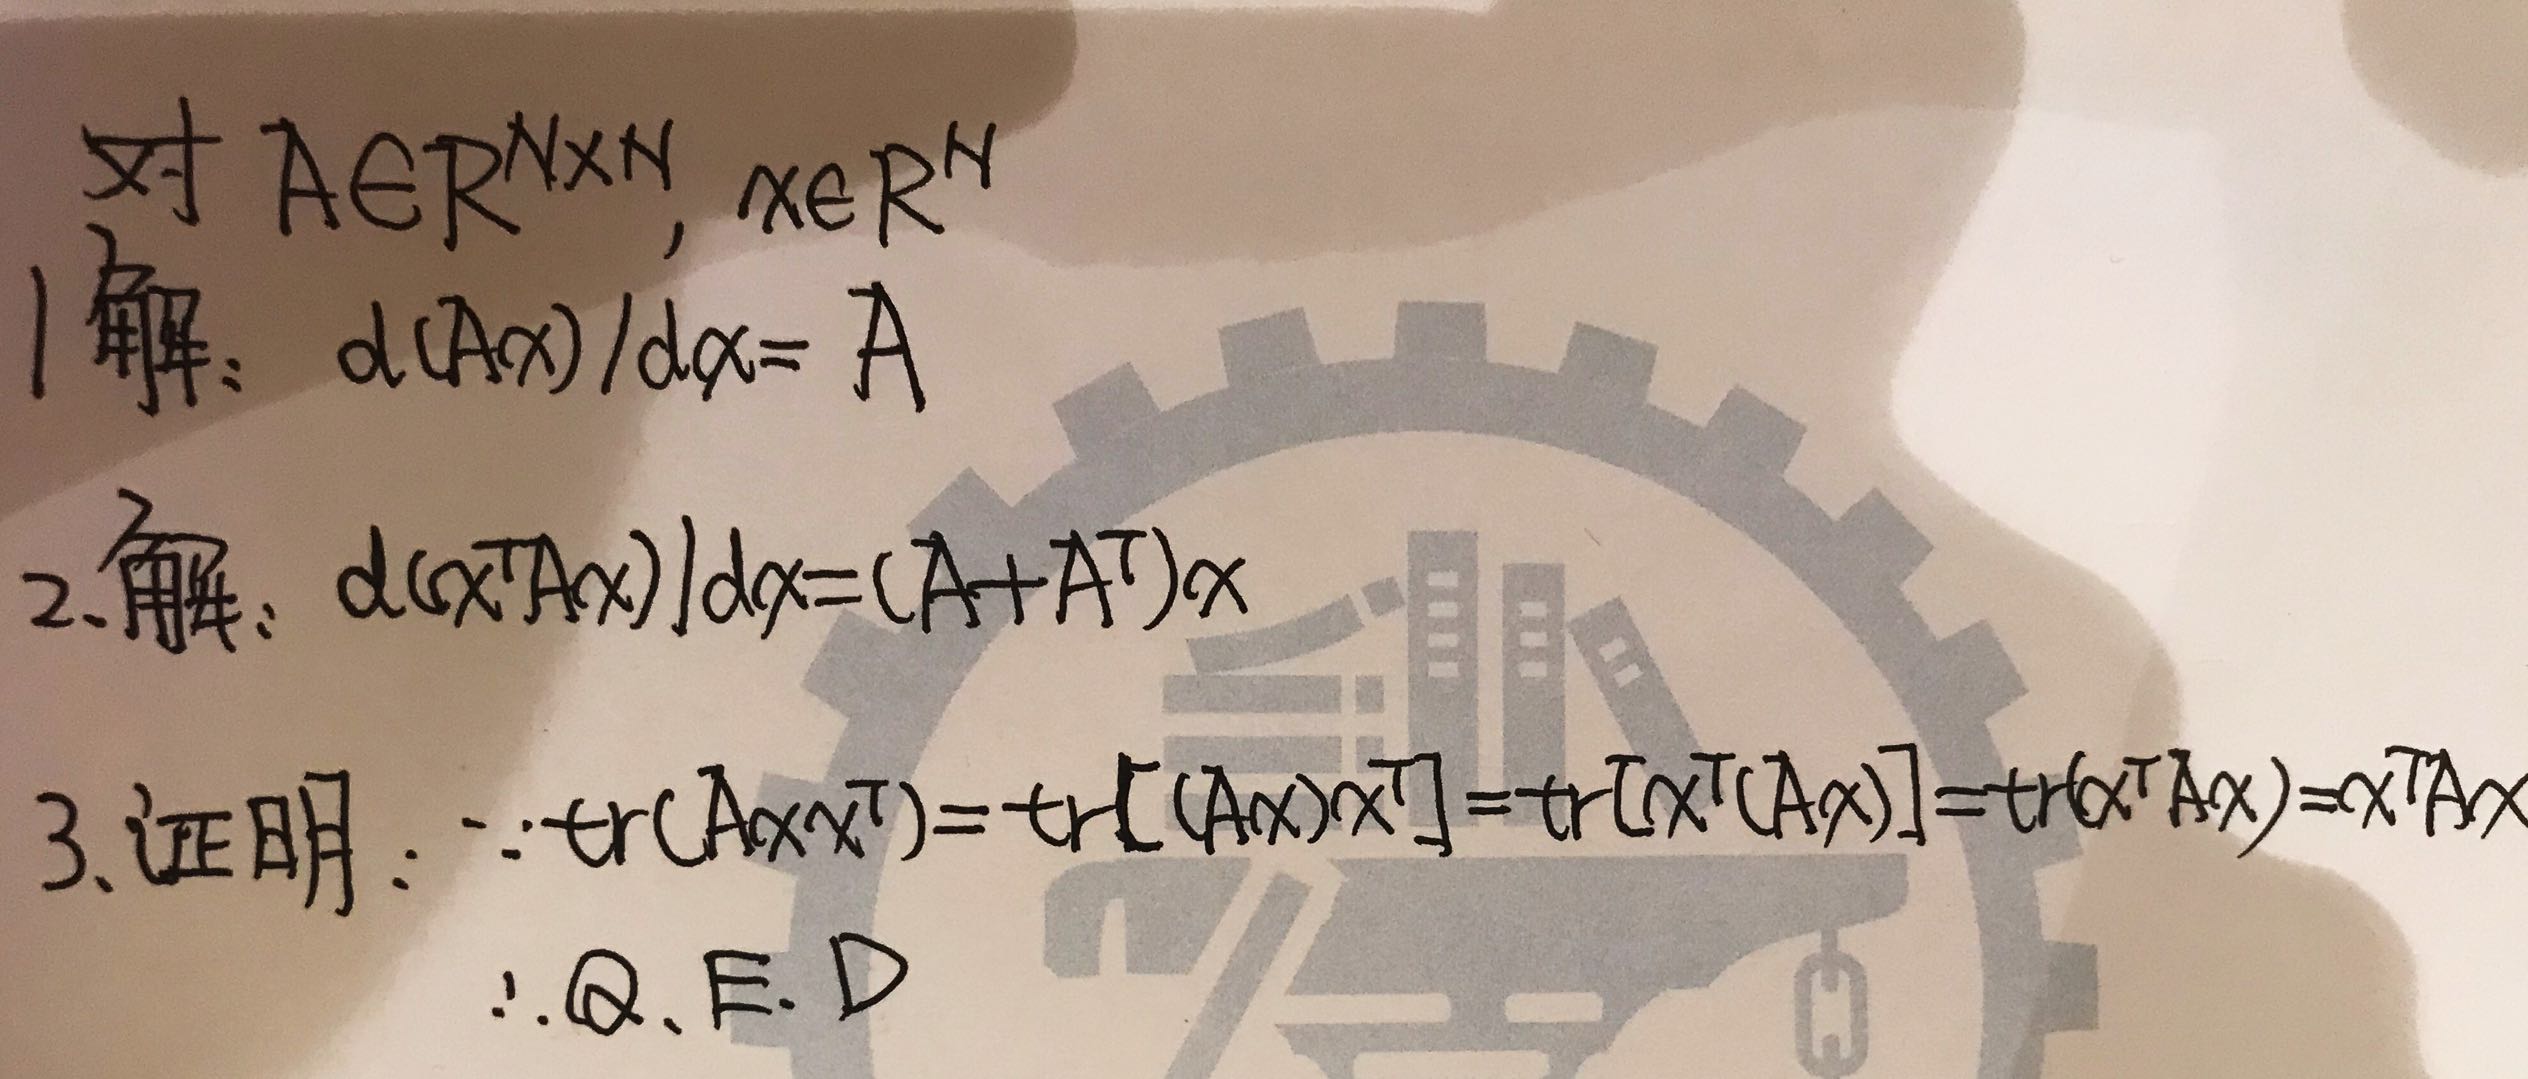 对 A∈R^{N×N}, x∈R^N
1 解: d(Ax)/dx= A
2、解: d(x^TAx)/dx=(A+A^T)x
3、证明: ∵tr(Axx^T)=tr[(Ax)x^T]=tr[x^T(Ax)]=tr(x^TAx)=x^TAx
∴Q、E.D